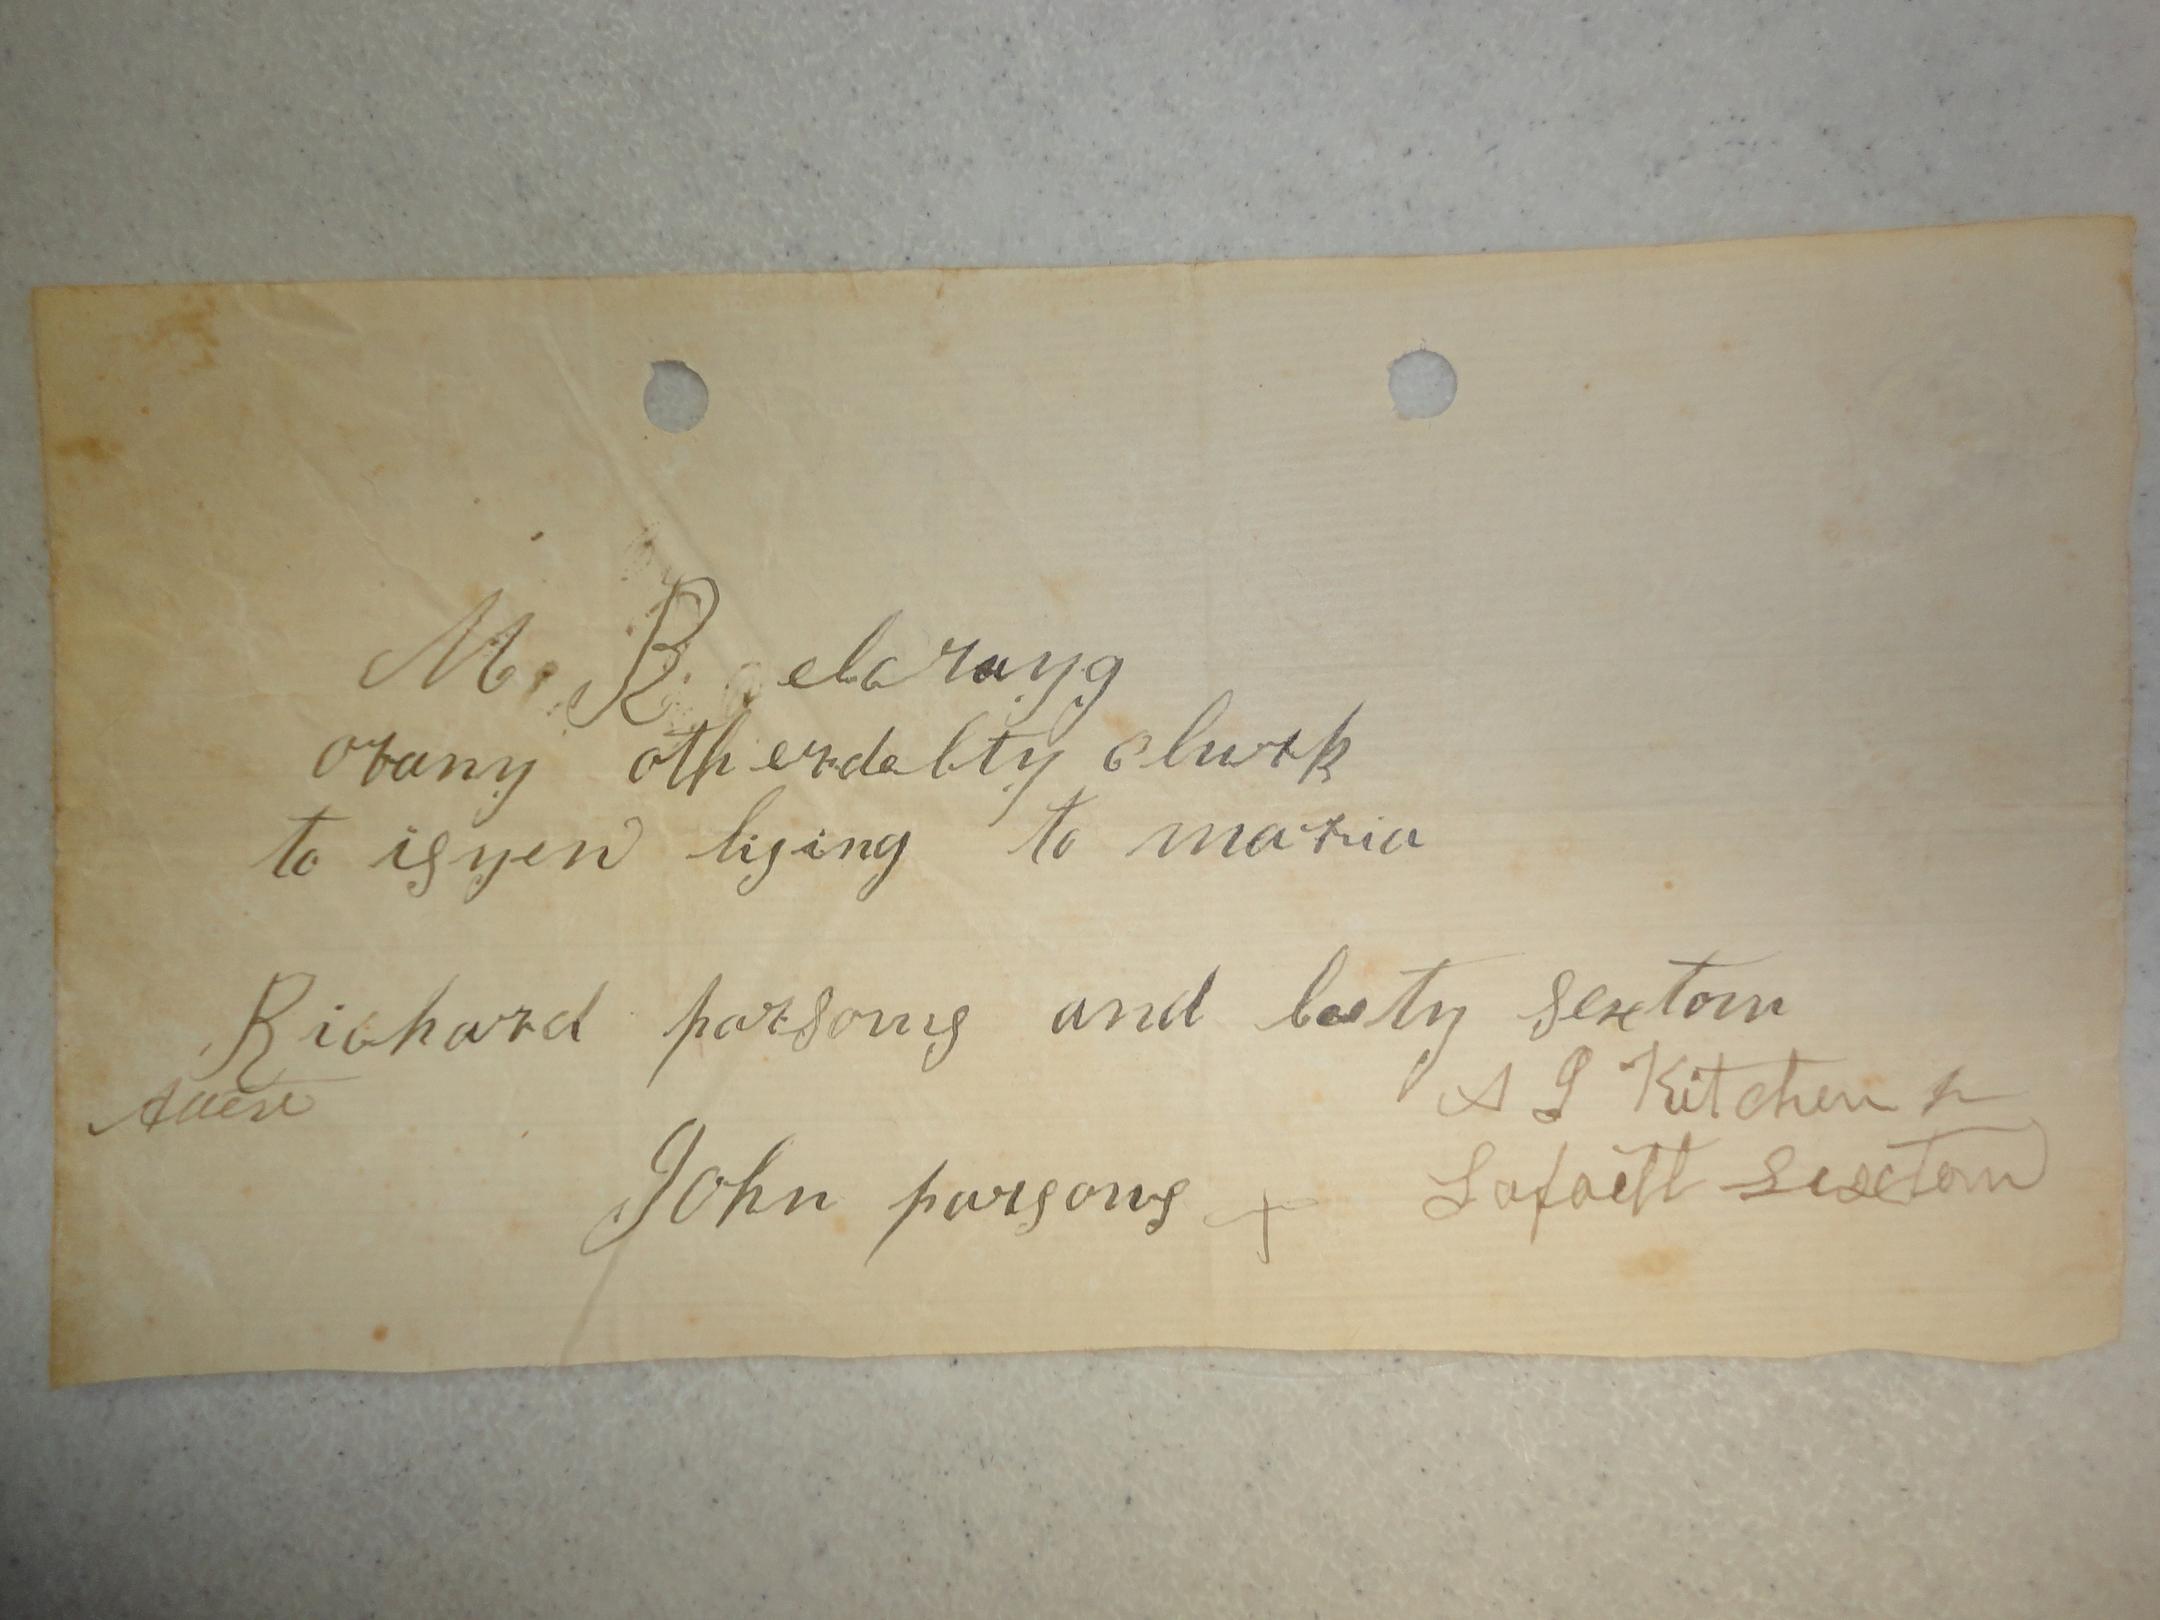 M. B. elarayg
orany otherdebty clurk
to isyen lising to maria
Richard parsons and bety sextom
Attest
A L Kitchen Jr
John parsons +
Lafaett Sextom